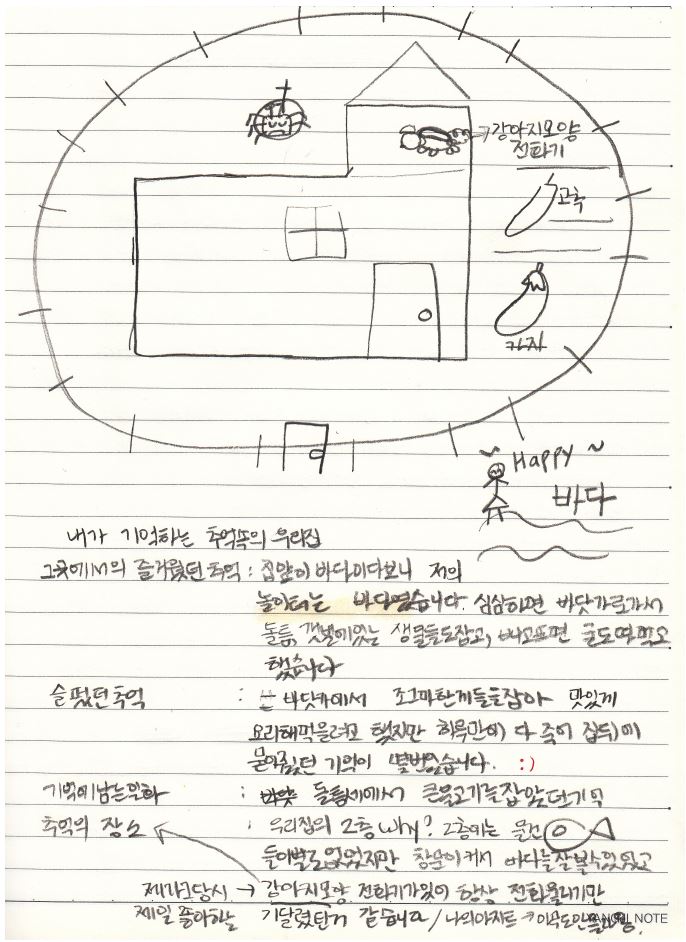 강아지모양
전화기
고추
가지
Happy ~
바다
내가 기억하는 추억속의 우리집
그곳에서의 즐거웠던 추억 : 집앞이 바다이다보니 저의
놀이터는 바다였습니다. 심심하면 바닷가로가서
돌틈, 갯벌에있는 생물들도잡고, 배고프면 굴도따먹고
했습니다
슬펐던추억 : 바닷가에서 조그마한게들을잡아 맛있게
요리해먹을려고 했지만 하루만에 다 죽어 집뒤에
묻어줬던 기억이 몇번있습니다. :)
기억에남는일화 : 돌틈새에서 큰물고기를잡았던기억
추억의 장소 : 우리집의 2층 why? 2층에는 물건
들이별로없었지만 창문이커서 바다를잘볼수있었고
제가그당시 → 강아지모양 전화기가있어 항상 전화올때만
제일 좋아하는 기달렸던거 같습니다 / 나의아지트
YANGJI NOTE